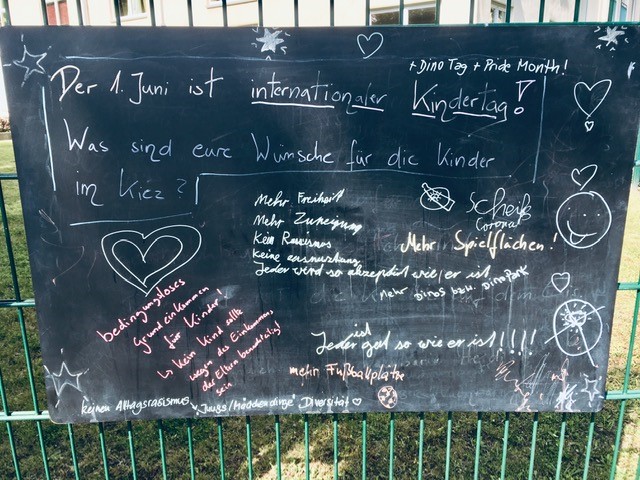 + Dino Tag + Pride Month!
Der 1. Juni ist internationaler Kindertag!
Was sind eure Wünsche für die Kinder
im Kiez?
Mehr Freiheit
Mehr Zuneigung
Kein Rassismus
Keine ausnutzung
Jeder wird so akzeptirt wie/er ist
Scheiß
Corona
Mehr Spielflächen!
Mehr Dinos bzw. Dino Park
bedingungsloses
Grundeinkommen
für Kinder!
↳ kein Kind sollte
wegen des Einkommen,
der Eltern benachteiligt
sein
Jeder ist gut so wie er ist!!!!!
mehr Fußballplätze
keinen Alltagsrasismus, Diversität ♡